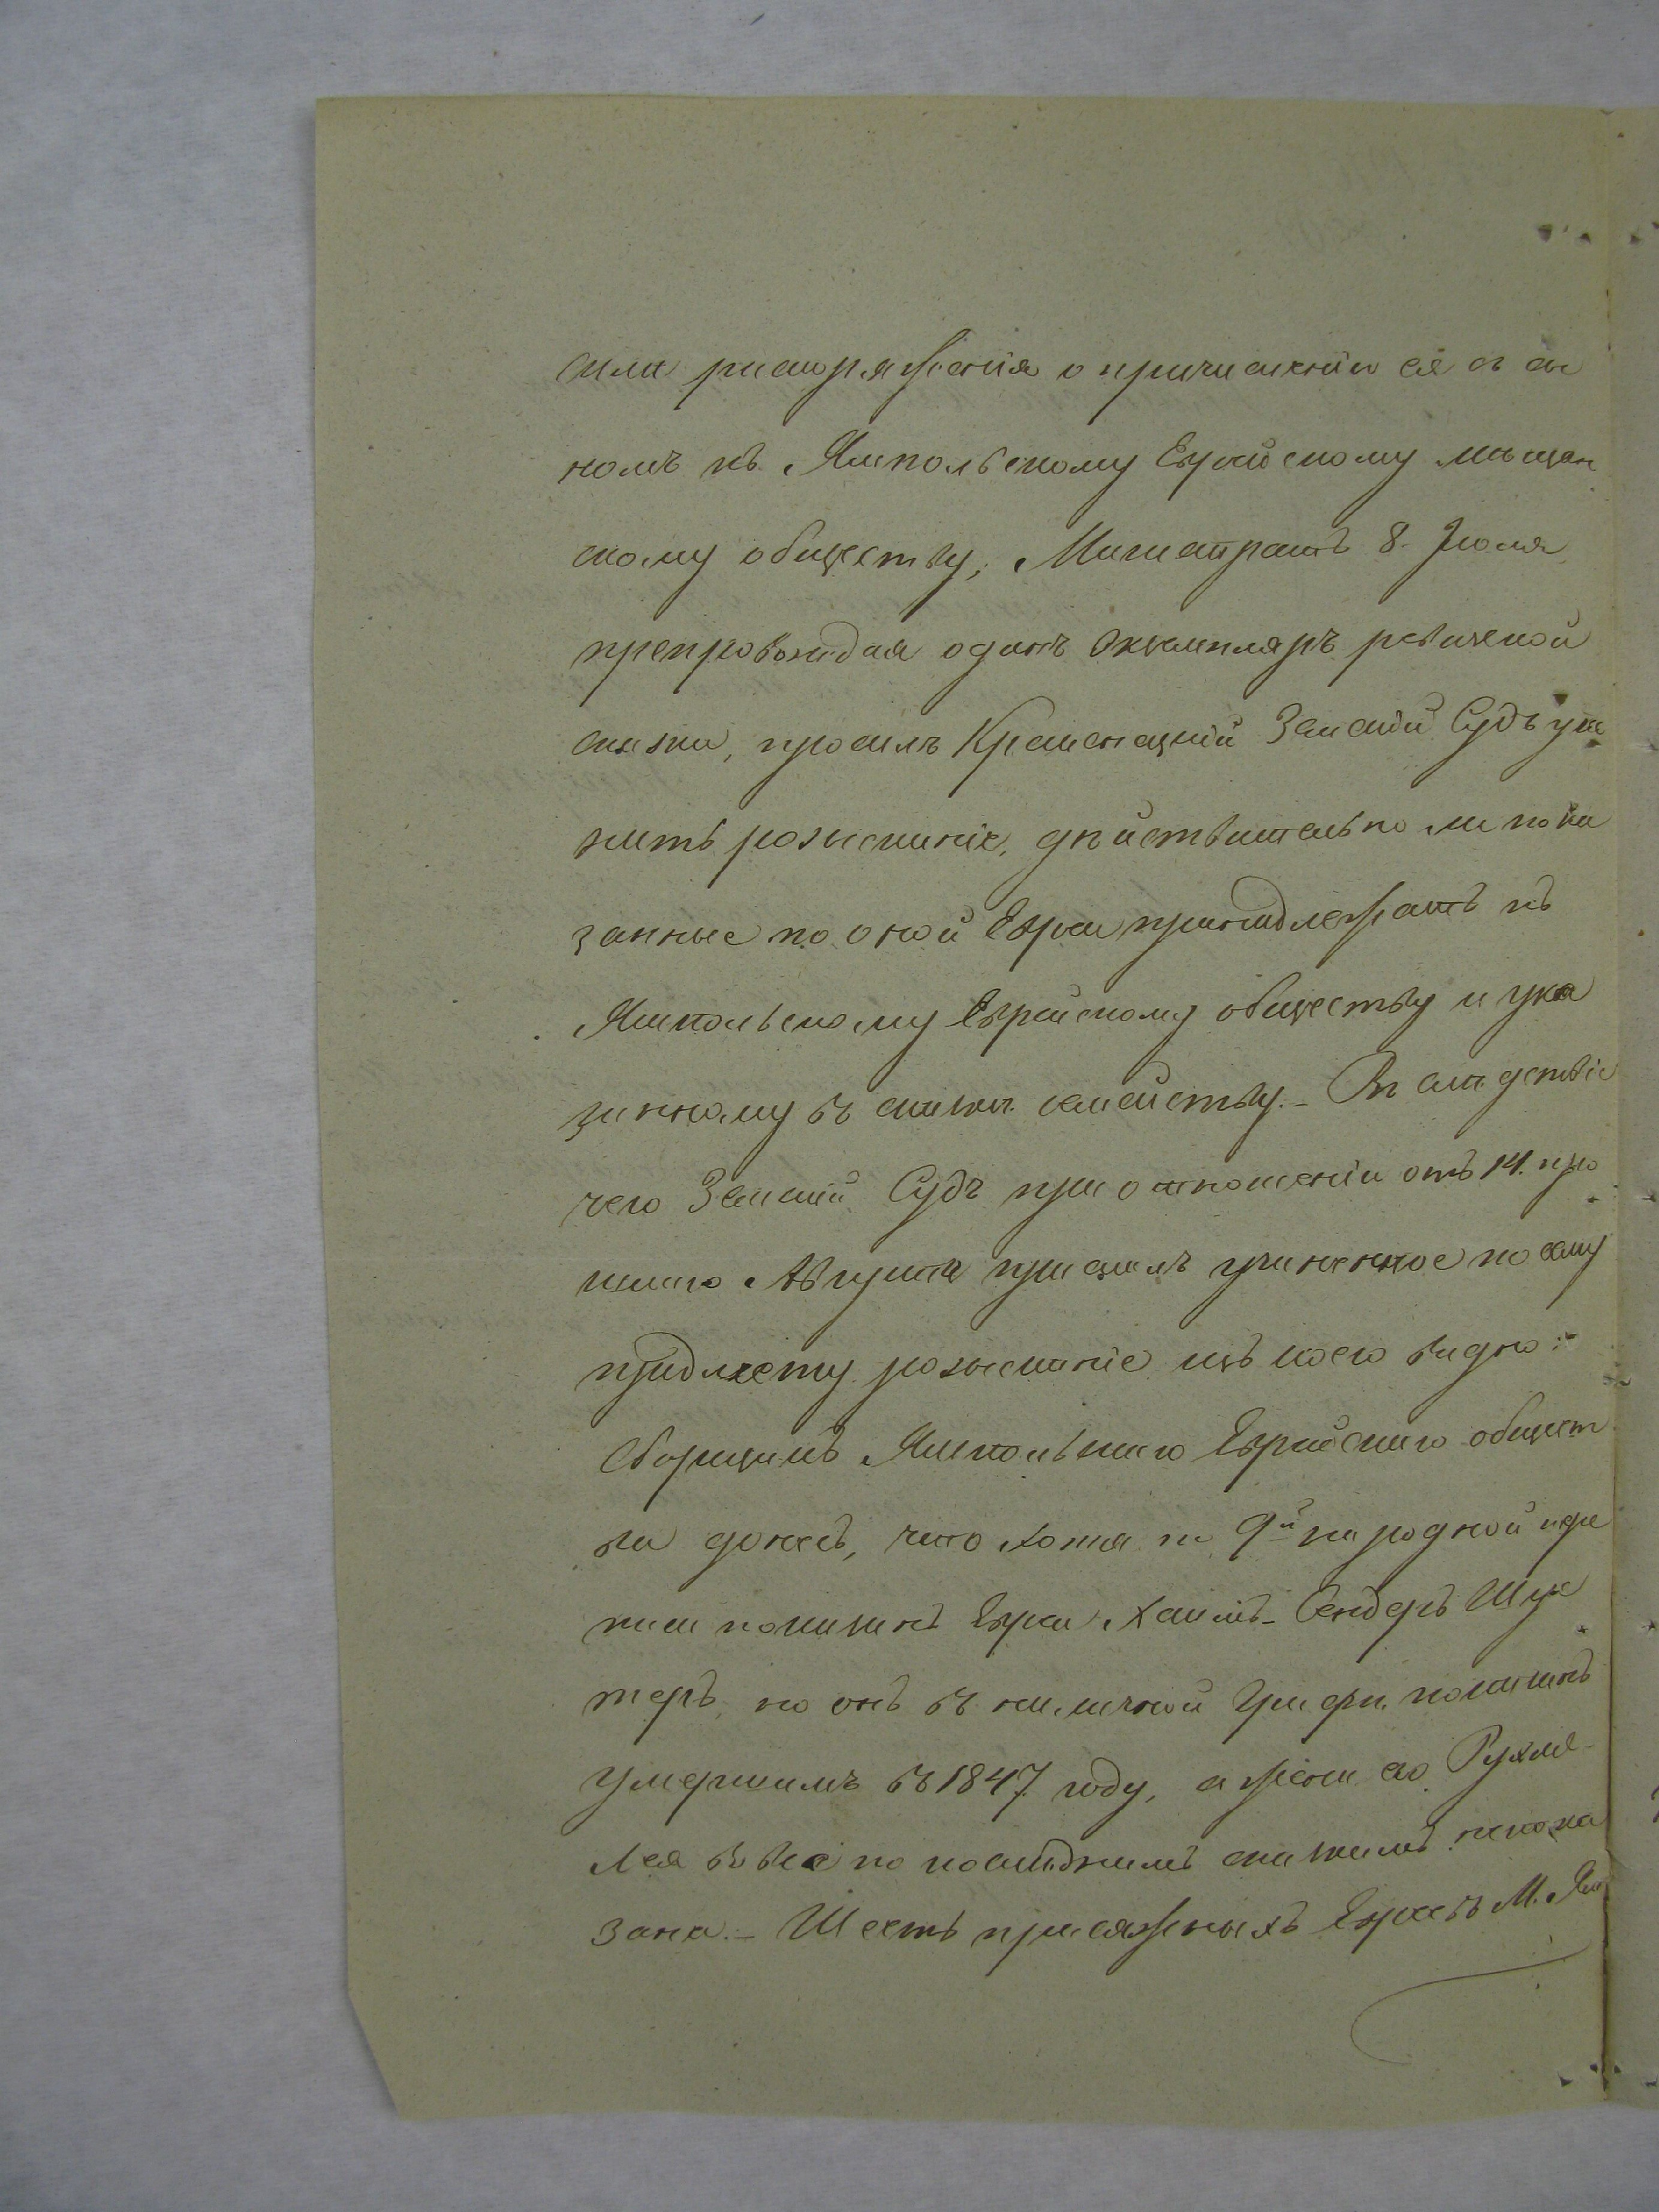 сила распоряженія о причисленіи ея съ сы
номъ къ Ямпольскому Еврейскому мѣщан
скому обществу, Магистратъ 8. Іюля
препровождая одинъ экземпляръ ревизской
сказки, просилъ Кременецкій Земскій Судъ учи
нить розысканіе, дѣйствительно ли пока
занные по оной Евреи принадлежатъ къ
Ямпольскому Еврейскому обществу и ука
занному въ сказкѣ семейству. – Въ слѣдствіе
чего Земскій Судъ при отношеніи отъ 14. про
шлаго Августа прислалъ учиненное по сему
предмету розысканіе изъ коего видно:
Сборщикъ Ямпольскаго Еврейскаго общест
ва донесъ, что хотя по 9й народной пере
писи показанъ Еврей Хаимъ-Сендеръ Шус
теръ, но онъ въ наличной графѣ показанъ
умершимъ въ 1847 году, а жена его Рухля-
Лея вовсе по послѣднимъ сказкамъ непока
зана. – Шесть присяжныхъ Евреевъ М. Ям